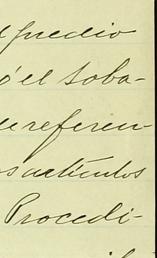 predio
el soba-
de referen-
os artículos
Procedi-